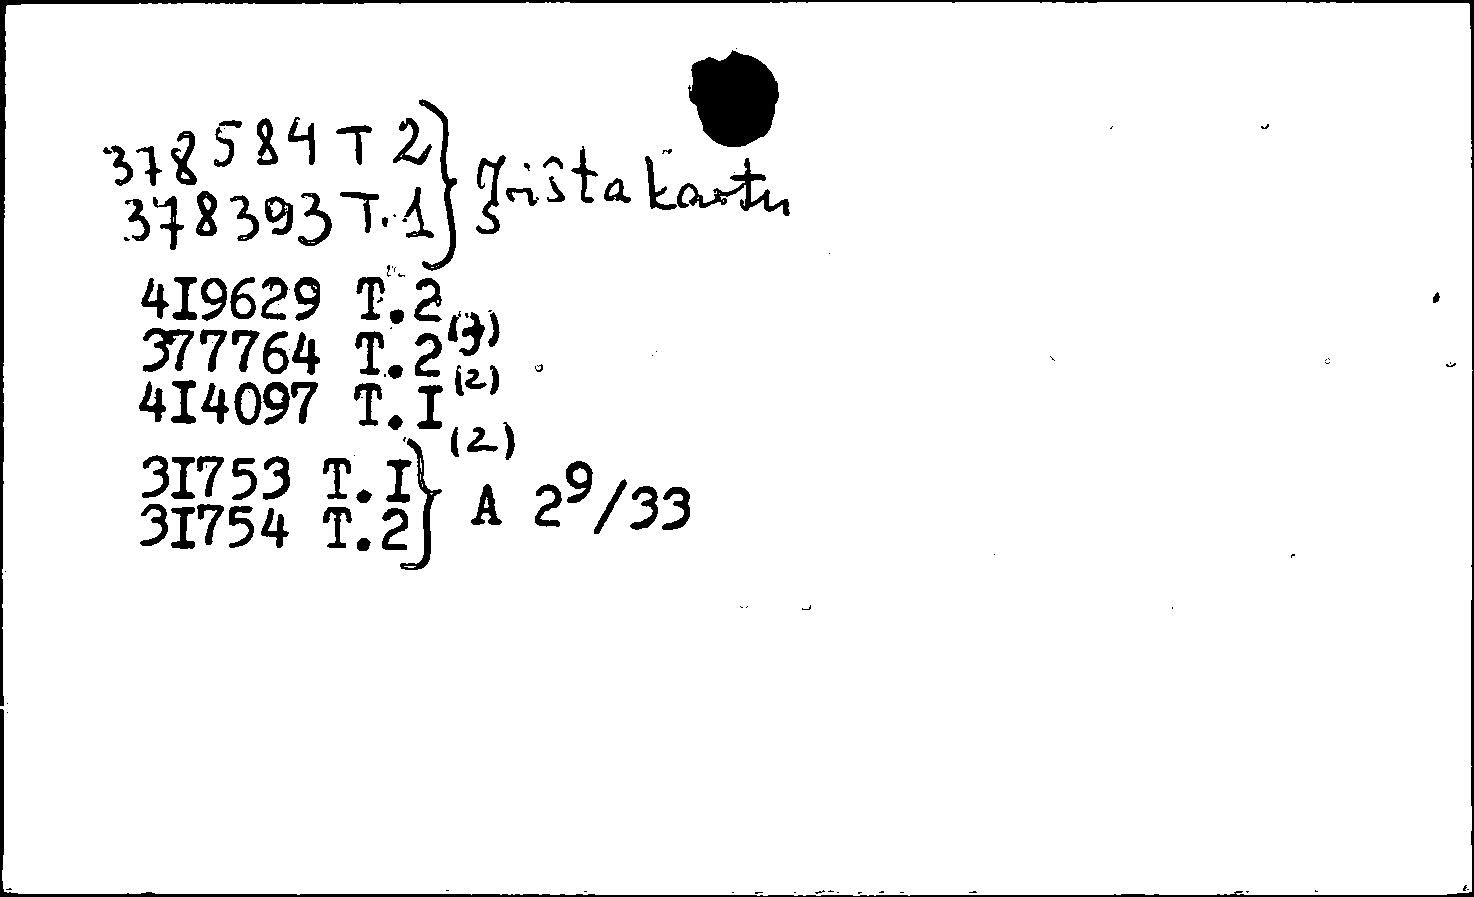 378584 T 2
378393 T.1
Įrišta kartu
4I9629 T.2
377764 T.2
4I4097 T.I (2)
(2)
3I753 T.I
3I754 T.2
A 2⁹/33